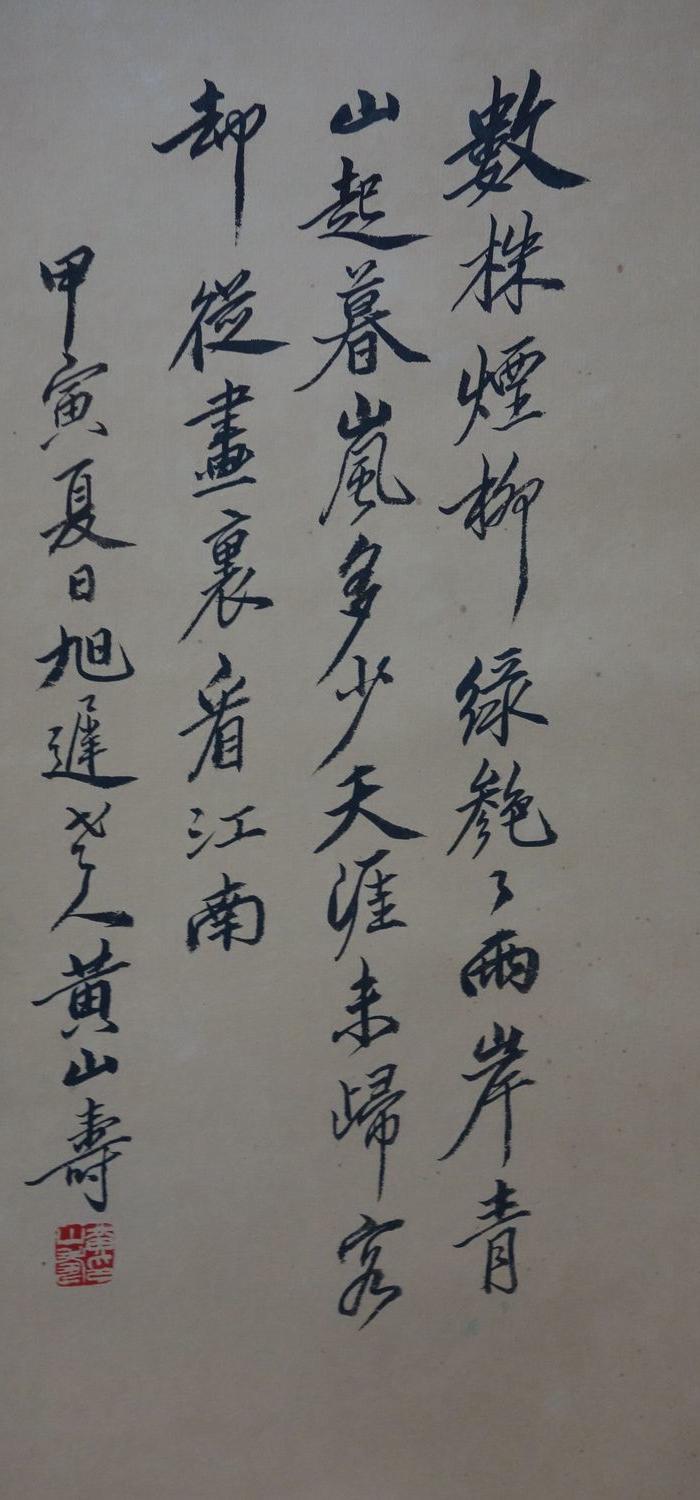 數株煙柳綠毿々兩岸青
山起暮嵐多少天涯未歸客
却從畫裏看江南
甲寅夏日旭遲老人黃山壽